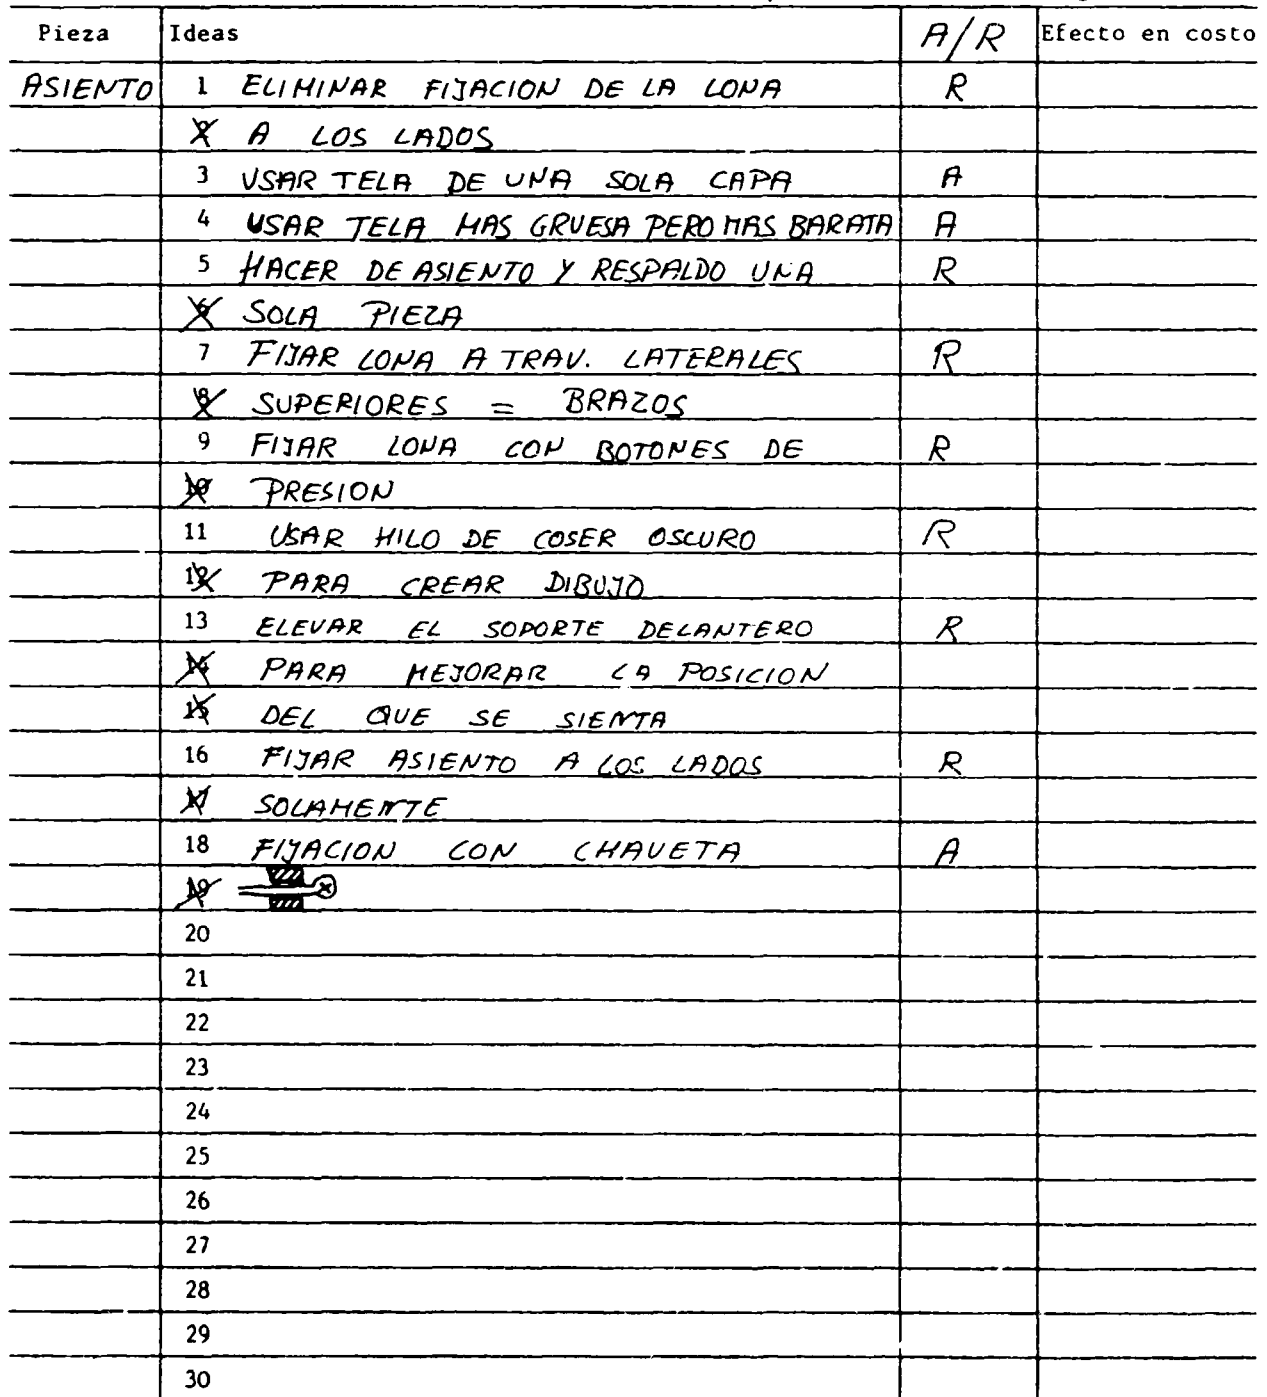 Pieza Ideas A/R Efecto en costo
ASIENTO 1 ELIMINAR FIJACION DE LA LONA R
2 A LOS LADOS
3 USAR TELA DE UNA SOLA CAPA A
4 USAR TELA MAS GRUESA PERO MAS BARATA A
5 HACER DE ASIENTO Y RESPALDO UNA R
6 SOLA PIEZA
7 FIJAR LONA A TRAV. LATERALES R
8 SUPERIORES = BRAZOS
9 FIJAR LONA CON BOTONES DE R
10 PRESION
11 USAR HILO DE COSER OSCURO R
12 PARA CREAR DIBUJO
13 ELEVAR EL SOPORTE DELANTERO R
14 PARA MEJORAR LA POSICION
15 DEL QUE SE SIENTA
16 FIJAR ASIENTO A LOS LADOS R
17 SOLAMENTE
18 FIJACION CON CHAVETA A
19
20
21
22
23
24
25
26
27
28
29
30